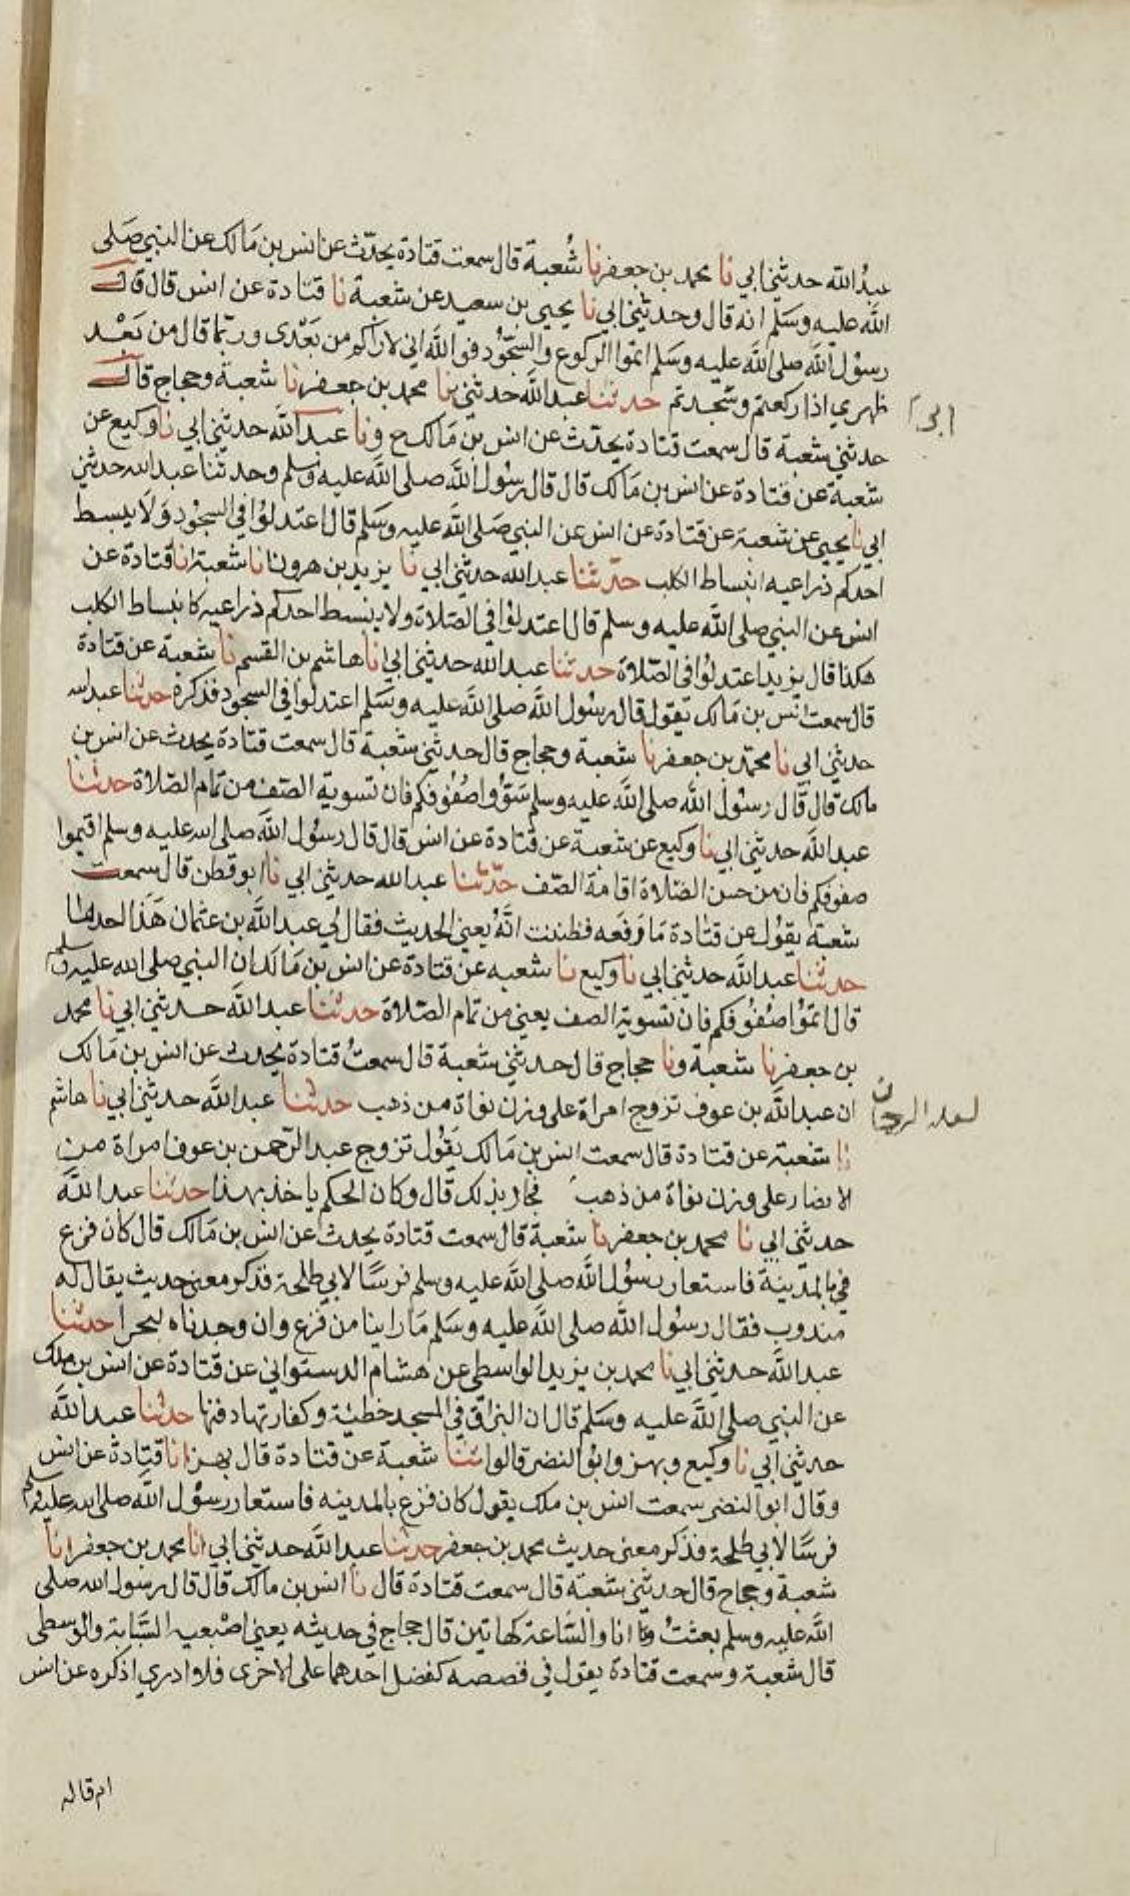 عبدُ الله حدثني ابي نا محمد بن جعفر نا شُعبة قال سمعت قتادة يحدّث عن انس بن مَالك عن النبي صَلى
الله عليه وسَلم انه قال وحدثني ابي نا يحيى بن سعيد عن شعبة نا قتادة عن انس قال قال
رسُول الله صلى الله عليه وسَلم اتموا الركوع والسُّجود فو الله اني لاراكم من بَعْدى وربّما قال من بَعْد
ظهري اذا ركعتم وسَجدتم حدثنا عبد الله حدثني نا محمد بن جعفر نا شعبة وحجاج قال
ابي
حدثني شعبة قال سمعت قتادة يحدّث عن انس بن مَالك ح ونا عبد الله حدثني ابي نا وكيع عن
شعبة عن قتادة عن انس بن مَالك قال قال رسُول الله صلى الله عليه وسلم وحدثنا عبد الله حدثني
ابي نا يحيى عن شعبة عن قتادة عن انس عن النبي صَلى الله عليه وسَلم قال اعتدلوُا في السجوُد وَلَا يبسط
احدكم ذراعيه انبساط الكلب حدّثنا عبد الله حدثني ابي نا يزيد بن هرون انا شعبة انا قتادة عن
انس عن النبي صلى الله عليه وسلم قال اعتدلوُا في الصَلاة ولا يبسط احدكم ذراعيه كانبساط الكلب
هكذا قال يزيد اعتدلوُا في الصّلاة حدثنا عبد الله حدثني ابي نا هاشم بن القسم نا شعبة عن قتادة
قال سمعت انس بن مَالك يَقول قال رسُول الله صلى الله عليه وسَلم اعتدلوُا في السجود فذكرهُ حدثنا عبد الله
حدثني ابي نا محمّد بن جعفر نا شعبة وحجاج قال حدثني شعبة قال سمعت قتادة يحدث عن انس بن
مالك قال قال رسُول الله صلى الله عليه وسلم سَوُّوا صُفُوفكم فان تسوية الصّف من تمام الصّلاة حدثنا
عبد الله حدثني ابي نا وكيع عن شعبة عن قتادة عن انس قال قال رسُول الله صلى الله عليه وسلم اقيموا
صفوفكم فان من حسن الصّلاة اقامة الصّف حدّثنا عبد الله حدثني ابي نا ابو قطن قال سمعت
شعبة يقوُل عن قتادة مَا رَفعَه فظننت انّهُ يعني الحديث فقال لي عبد الله بن عثمان هَذا احدها
حدثنا عبد الله حدثني ابي نا وكيع نا شعبه عن قتادة عن انس بن مَالك ان النبي صلى الله عليه وسلم
قال اتمّوُا صُفوُفكم فان تسوية الصف يعني من تمام الصّلاة حدثنا عبد الله حدثني ابي نا محمد
بن جعفر نا شعبة ونا حجاج قال حدثني شعبة قال سمعتُ قتادة يحدث عن انس بن مَالك
ان عبد الله بن عوف تزوج امراة على وزن نواة من ذهب حدثنا عبد الله حدثني ابي نا هاشم
لعله الرحمان
نا شعبة عن قتادة قال سمعت انس بن مَالك يَقوُل تزوج عبد الرّحمن بن عوف امراة من
الانصار على وزن نواة من ذهب فجاز ذلك قال وكان الحكم ياخذ بهذا حدثنا عبد الله
حدثني ابي نا محمد بن جعفر نا شعبة قال سمعت قتادة يحدث عن انس بن مَالك قال كان فزع
في بالمدينة فاستعار رسوُل الله صلى الله عليه وسلم فرسًا لابي طلحة فذكر معنى حديث يقال له
مندوب فقال رسوُل الله صلى الله عليه وسَلم مَا راينا من فزع وان وجدناه لبحرا حدثنا
عبد الله حدثني ابي نا محمد بن يزيد الواسطي عن هشام الدستواني عن قتادة عن انس بن ملك
عن النبي صلى الله عليه وسَلم قال ان البزاق في المسجد خطيئة وكفارتها دفنها حدثنا عبد الله
حدثني ابي نا وكيع وبهز وابوُ النضر قالوا ثنا شعبة عن قتادة قال بهز انا قتادة عن انس
وقال ابو النضر سمعت انس بن ملك يقول كان فزع بالمدينه فاستعار رسوُل الله صلى الله عليه وسلم
فرسًا لابي طلحة فذكر معنى حديث محمد بن جعفر حدثنا عبد الله حدثني ابي انا محمد بن جعفر انا
شعبة وحجاج قال حدثني شعبة قال سمعت قتادة قال نا انس بن مالك قال قال رسول الله صلى
الله عليه وسلم بعثتُ انا والسَّاعة كهاتين قال حجاج في حديثه يعني اصْبعيه السَّبابة والوُسطى
قال شعبة وسمعت قتادة يقول في قصصه كفضل احدهما على الاخرى فلا ادري اذكره عن انس
ام قاله